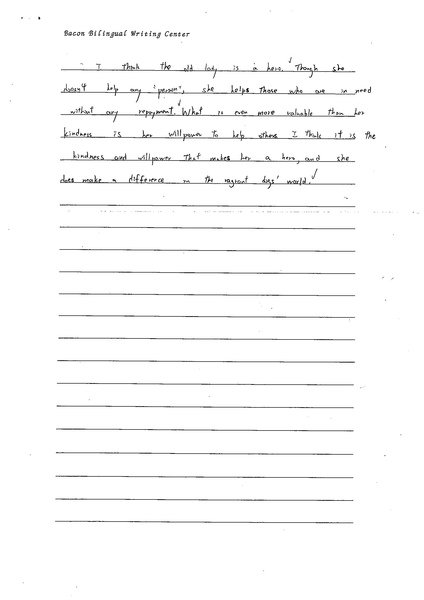 Bacon Bilingual Writing Center
I think the old lady is a hero. Though she
doesn't help any "person", she helps those who are in need
without any repayment. What is even more valuable than her
kindness is her willpower to help others I think it is the
kindness and willpower that makes her a hero, and she
does make a difference in the vagrant dogs' world.